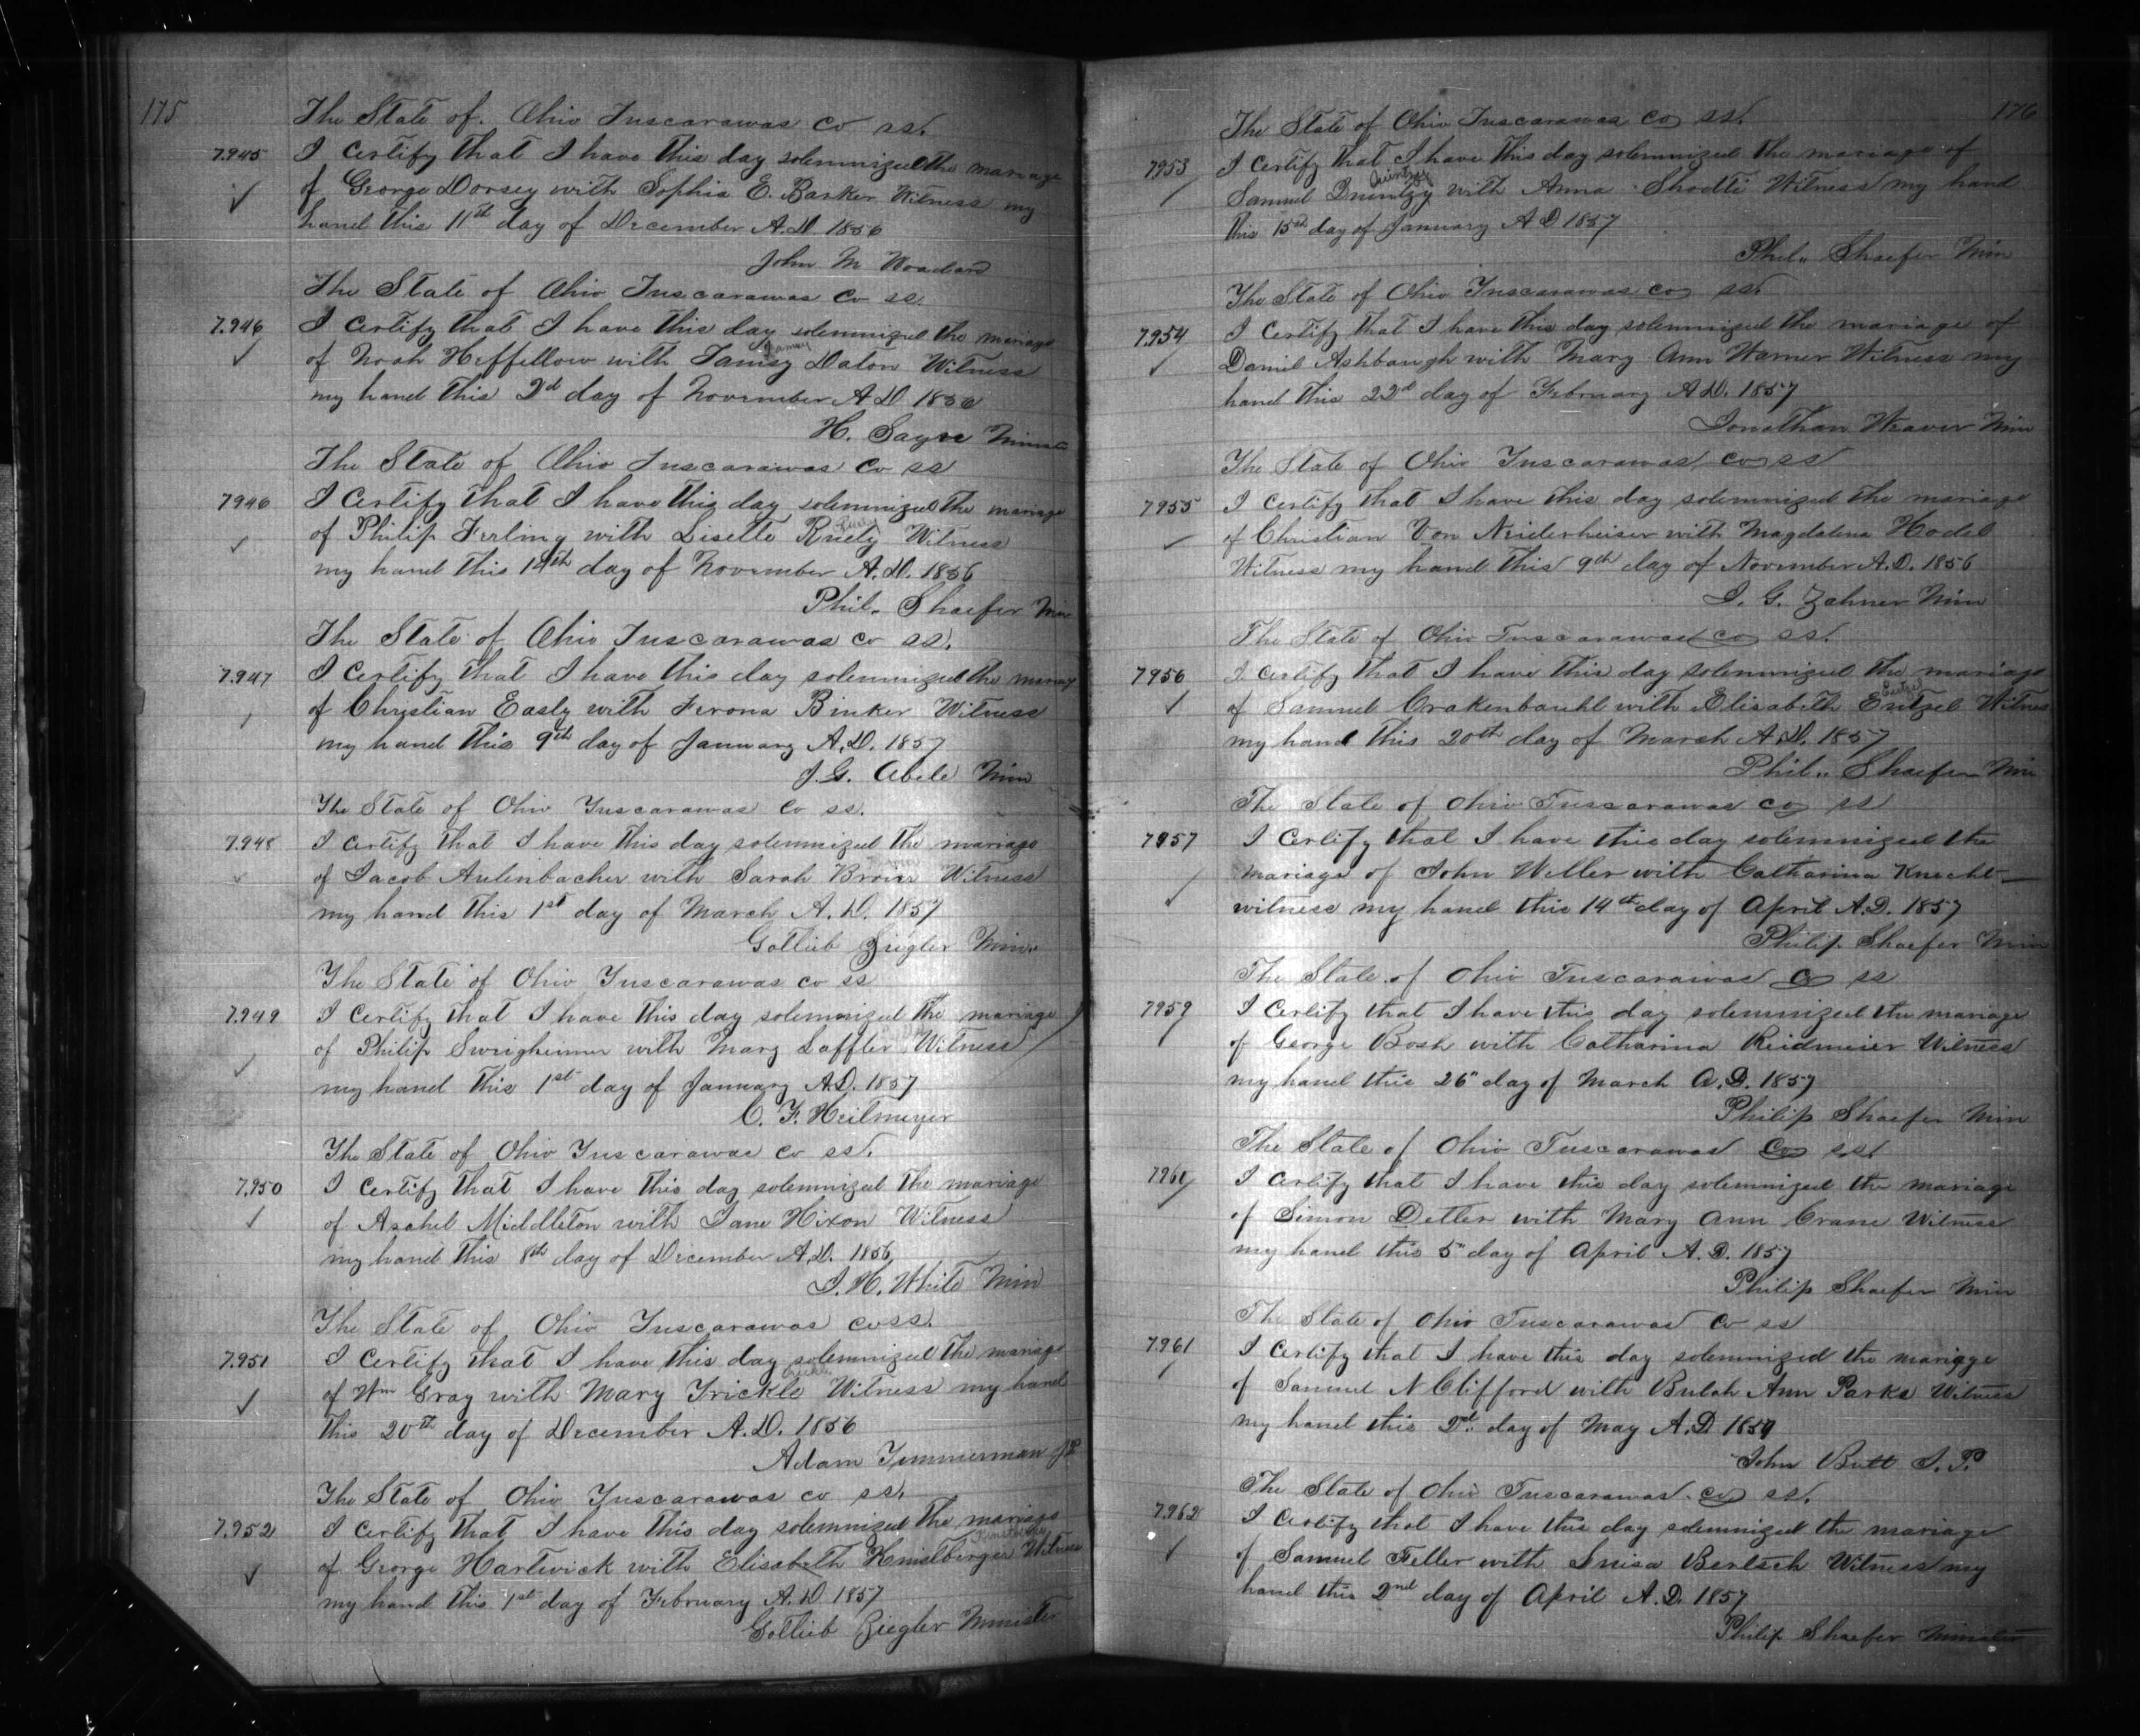 175
The State of Ohio Tuscarawas Co ss.
7.945 I Certify that I have this day solemnized the mariage
of George Dorsey with Sophia E. Barker Witness my
hand this 11th day of December A.D. 1856
John M
The State of Ohio Tuscarawas Co ss.
7.946 I Certify that I have this day solemnized the mariage
of Noah Heffellow with Daton Witness
my hand this 2d day of November A.D. 1856
H. Sayre
The State of Ohio Tuscarawas Co ss
7946 I Certify that I have this day solemnized the mariage
of Philip Ferling with Lisette Witness
my hand this day of November A.D. 1856
Phil. Shaefer Min
The State of Ohio Tuscarawas Co ss.
7.947 I Certify that I have this day solemnized the
of Christian Easly with Ferona Binker Witness
my hand this 9th day of January A.D. 1857
J.G. Abele Min
The State of Ohio Tuscarawas Co ss.
7.948 I Certify that I have this day solemnized the mariage
of Jacob Aulenbacher with Sarah Witness
my hand this 1st day of March A.D. 1857
Gotlieb Ziegler Min.
The State of Ohio Tuscarawas Co ss
7.949 I Certify that I have this day solemnized the mariage
of Philip Sweigheimer with Mary Laffler Witness
my hand this 1st day of January A.D. 1857
C. F. Heitmeyer
The State of Ohio Tuscarawas Co ss.
7.950 I Certify that I have this day solemnized the mariage
of Aschel Middleton with Jane Hixon Witness
my hand this 8th day of December A.D. 1856
I. H. White Min
The State of Ohio Tuscarawas Co ss.
7.951 I Certify that I have this day solemnized the mariage
of Wm Gray with Mary Trickle Witness my hand
this 20th day of December A.D. 1856
Adam Timmerman JP
The State of Ohio Tuscarawas Co ss.
7.952 I Certify that I have this day solemnized the mariage
of George Hartwick with Elisabeth Witness
my hand this 1st day of February A.D. 1857
Gotlieb Ziegler Minister
176
The State of Ohio Tuscarawas Co ss.
7953 I Certify that I have this day solemnized the mariage of
Quintzy
Samuel with Anna Shodte Witness my hand
this 15th day of January A.D. 1857
Phil. Shaefer Min
The State of Ohio Tuscarawas Co ss.
7954 I Certify that I have this day solemnized the mariage of
Daniel Ashbaugh with Mary Ann Warner Witness my
hand this 22d day of February A.D. 1857
Jonathan Weaver Min
The State of Ohio Tuscarawas Co ss
7955 I Certify that I have this day solemnized the mariage
of Christian Von Neiderheiser with Magdalena Hodel
Witness my hand this 9th day of November A.D. 1856
I. G. Zahner Min
The State of Ohio Tuscarawas Co ss.
7956 I Certify that I have this day solemnized the mariage
Eutzel
of Samuel Crakenbauhl with Elisabeth Witness
my hand this 20th day of March A.D. 1857
Phil. Shaefer Min
The State of Ohio Tuscarawas Co ss
7957 I Certify that I have this day solemnized the
mariage of John Weller with Catharina Knecht
witness my hand this 14th day of April A.D. 1857
Philip Shaefer Min
The State of Ohio Tuscarawas Co ss
7959 I Certify that I have this day solemnized the mariage
of George Bosh with Catharina Reidmeier Witness
my hand this 26" day of March A.D. 1857
Philip Shaefer Min
The State of Ohio Tuscarawas Co ss.
7960 I Certify that I have this day solemnized the mariage
of Simon Detter with Mary Ann Crane Witness
my hand this 5" day of April A.D. 1857
Philip Shaefer Min
The State of Ohio Tuscarawas Co ss
7961 I Certify that I have this day solemnized the mariage
of Samuel N Clifford with Bulah Ann Parks Witness
my hand this 2d day of May A.D
John Butt J.P.
The State of Ohio Tuscarawas Co ss.
7.962 I Certify that I have this day solemnized the mariage
of Samuel Feller with Luisa Bertsch Witness my
hand this 2nd day of April A.D. 1857
Philip Shaefer Minister